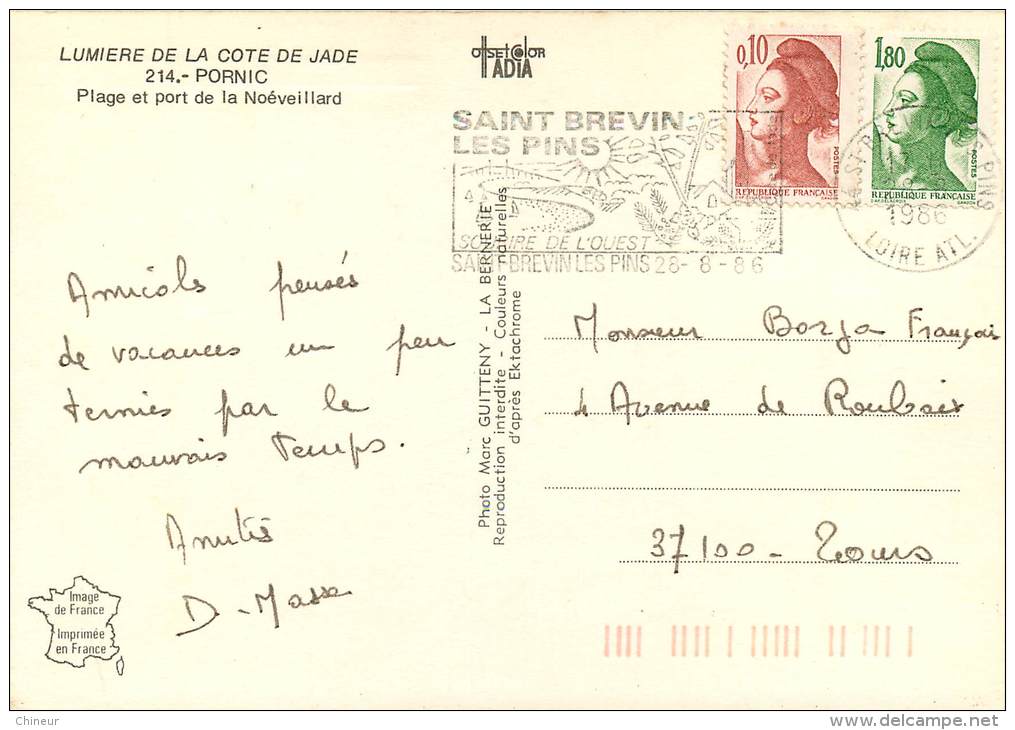 LUMIERE DE LA COTE DE JADE
214.- PORNIC
Plage et port de la Noéveillard
offset color
IADIA
0,10
POSTES
REPUBLIQUE FRANÇAISE
1,80
POSTES
REPUBLIQUE FRANÇAISE
SAINT BREVIN
LES PINS
DE L'OUEST
SAINT-BREVIN LES PINS 28-8-86
1986
LOIRE ATL.
PINS
Amicals pensés
de vacances un peu
ternies par le
mauvais temps.
Amitiés
D-Masse
Photo Marc GUITTENY - LA BERNERIE
Reproduction interdite - Couleurs naturelles
d'après Ektachrome
Monsieur Borja Français
4 Avenue de Roubaix
37100 - Tours
Image
de France
Imprimée
en France
Chineur
delcampe.net